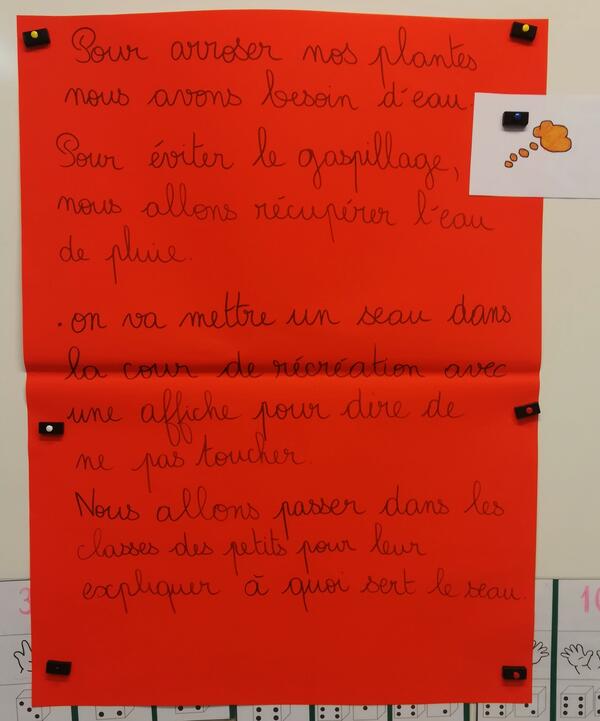 Pour arroser nos plantes
nous avons besoin d'eau.
Pour éviter le gaspillage,
nous allons récupérer l'eau
de pluie.
.on va mettre un seau dans
la cour de récréation avec
une affiche pour dire de
ne pas toucher.
Nous allons passer dans les
classes des petits pour leur
expliquer à quoi sert le seau.
3
10